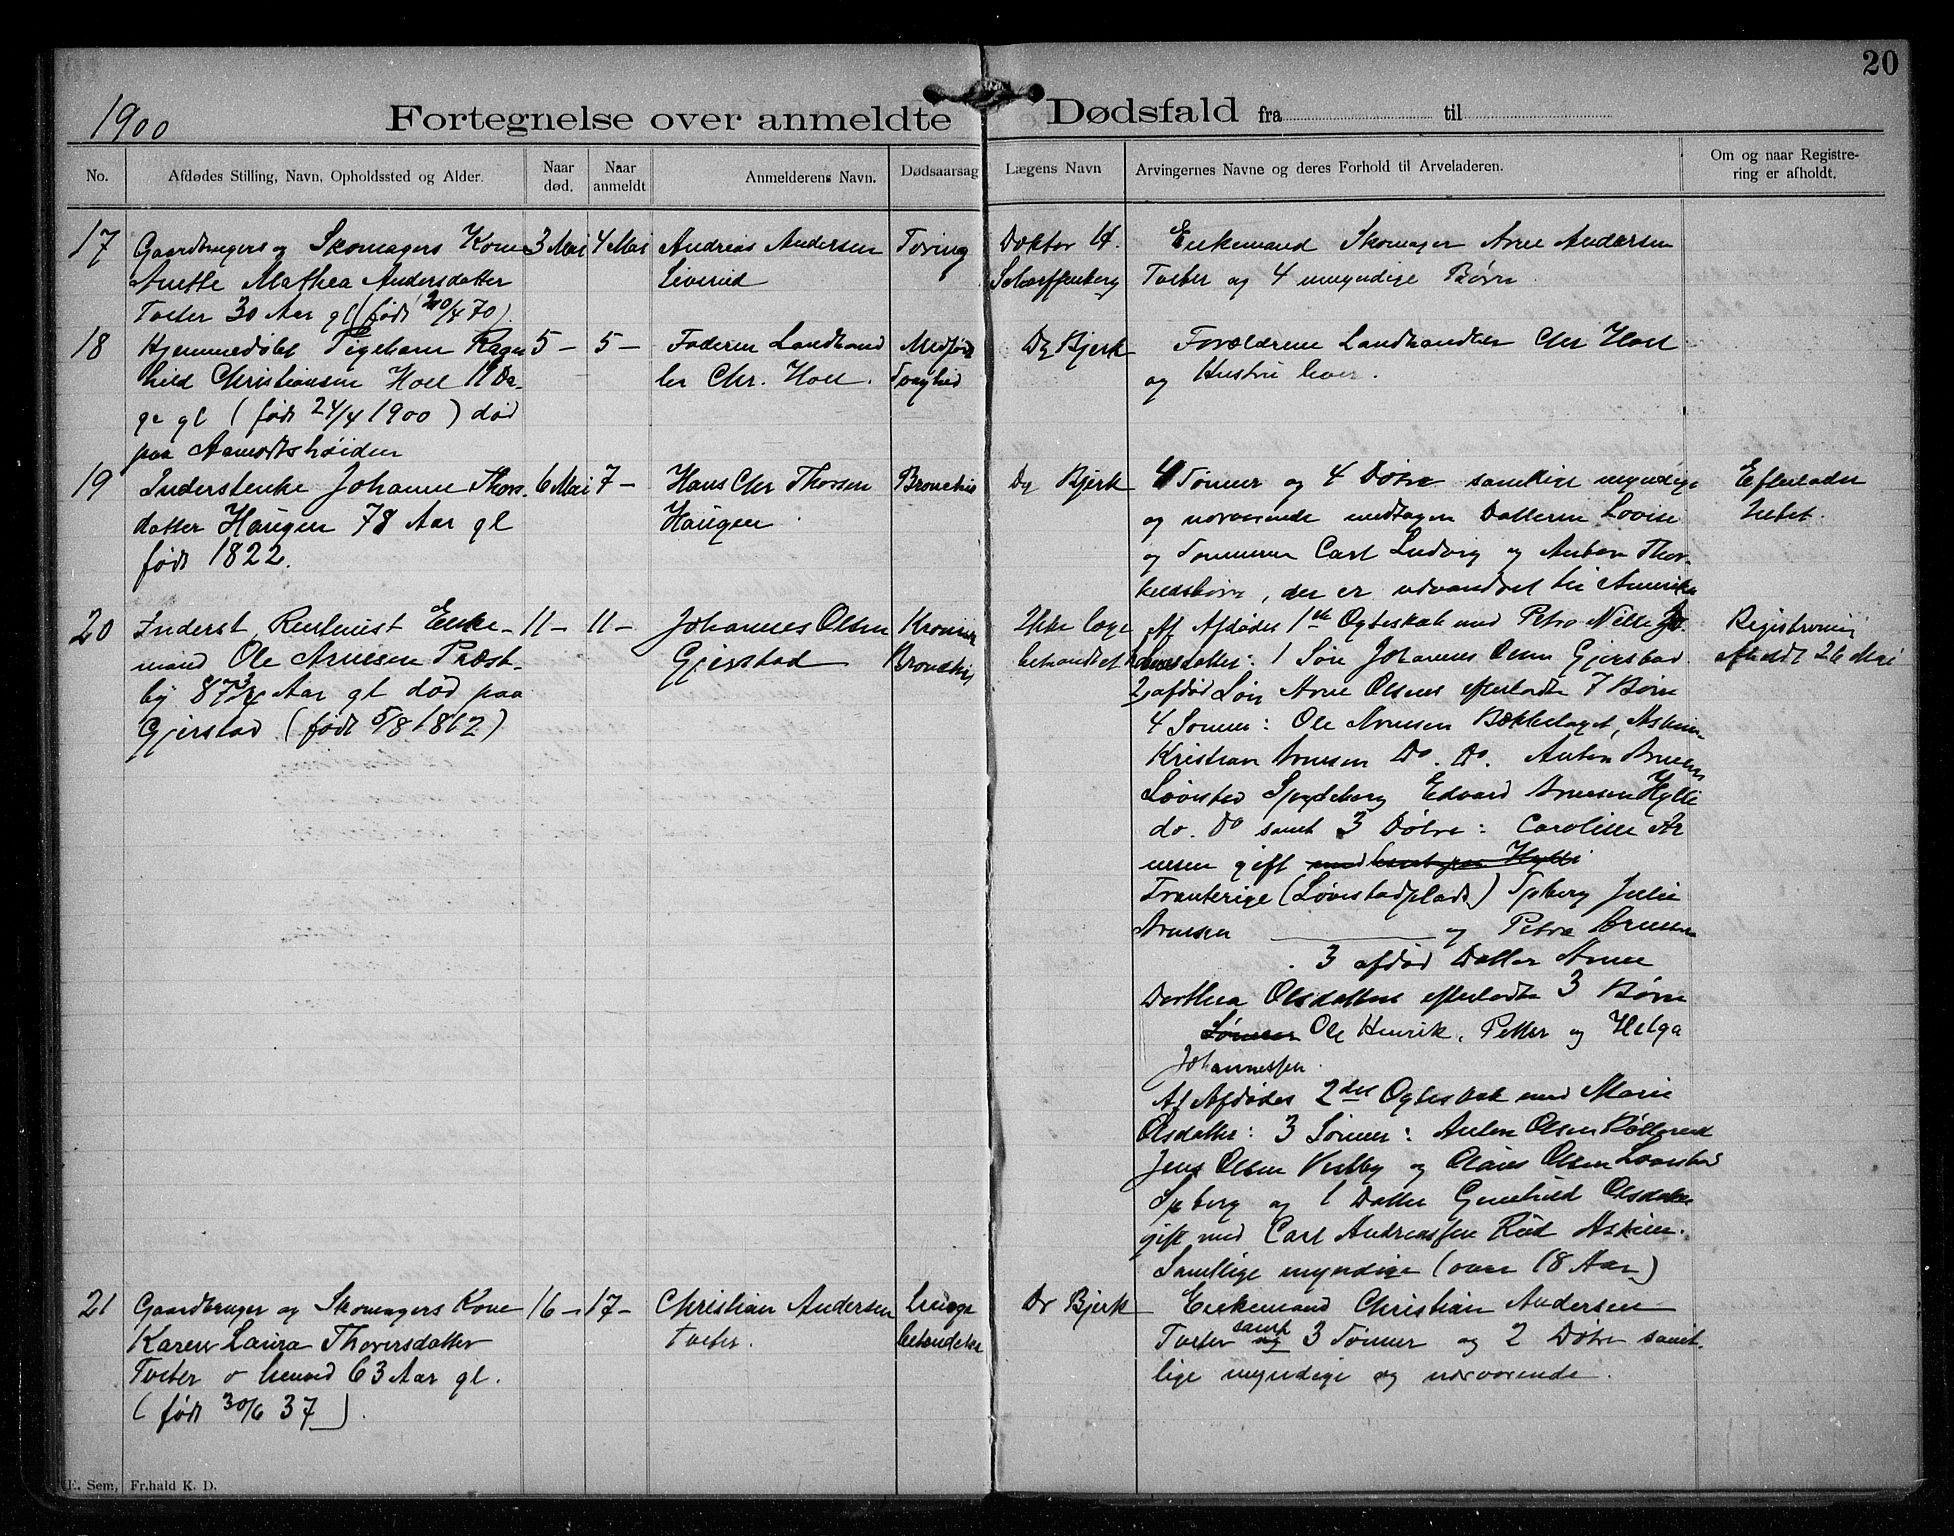 20
1900
Fortegnelse over anmeldte Dødsfald fra til
No.
Afdødes Stilling, Navn, Opholdssted og Alder.
Naar
død.
Naar
anmeldt
Anmelderens Navn.
Dødsaarsag
Lægens Navn
Arvingernes Navne og deres Forhold til Arveladeren.
Om og naar Registre-
ring er afholdt.
17
Gaardbrugers og Skomagers Kone
Anette Mathea Andersdatter
Tveter 30 Aar gl (født 20/4 70)
3 Mai
4 Mai
Andreas Andersen
Liverud
Tæring
Doktor H.
Scharffenberg
Enkemand Skomager Arne Andersen
Tveter og 4 umyndige Børn
18
Hjemmedøbt Pigebarn Ragn
hild Christiansen Holl 11 Da-
ge gl (født 24/4 1900) død
paa Aamodtshøiden
5 –
5 –
Faderen Landhand
ler Chr. Holl.
Medfød
Svaghed
Dr Bjerk
Forældrene Landhandler Chr Holl
og Hustru lever.
19
Inderstenke Johanne Thors
datter Haugen 78 Aar gl
født 1822.
6 Mai
7 –
Hans Chr Thorsen
Haugen
Bronchit
Dr Bjerk
4 Sønner og 4 Døtre samtlige myndige
og nærværende undtagen Datteren Lovise
og Sønnerne Carl Ludvig og Anton Thor-
kildsbørn, der er udvandret til Amerika
Efterlader
Intet.
20
Inderst Enke-
mand Ole Arnesen Præst-
by 87 3/4 Aar gl død paa
Gjerstad (født 5/8 1812)
11 –
11 –
Johannes Olsen
Gjerstad
Kronisk
Bronchit
Ikke læge
behandlet
Af Afdødes 1ste Ægteskab med Petro Nille Jo-
hannesdatter: 1 Søn Johannes Olsen Gjerstad.
2 afdød Søn Arne Olsens efterladte 7 Børn
4 Sønner: Ole Arnesen Bækkelaget, Askim
Kristian Arnesen Do. Do. Anton Arnesen
Løvestad Spydeberg Edvard Arnesen Hylli
do. Do samt 3 Døtre: Caroline Ar
nesen gift med Hylli
(Løvestadplads) Spberg Julie
Arnesen og Petra Arnesen
3 afdød Datter Anne
Dorthea Olsdatters efterladte 3 Børn
Sønner Ole Henrik, Petter og Helga
Johannessen.
Af Afdødes 2det Ægteskab med Marie
Olsdatter: 3 Sønner: Anton Olsen
Jens Olsen Vestby og Olaves Olsen Løvestad
Spberg og 1 Datter Gunhild Olsdatter
gift med Carl Andreassen Rud Askim.
Samtlige myndige (over 18 Aar)
Registrering
afholdt 26 Mai
21
Gaardbruger og Skomagers Kone
Karen Laura Thoversdatter
Tveter 63 Aar gl.
(født 30/6 37)
16 –
17 –
Christian Andersen
Tveter.
Lunge
betændelse
Dr Bjerk
Enkemand Christian Andersen
Tveter samt og 3 Sønner og 2 Døtre samt-
lige myndige og nærværende.
E. Sem, Fr.hald K. D.